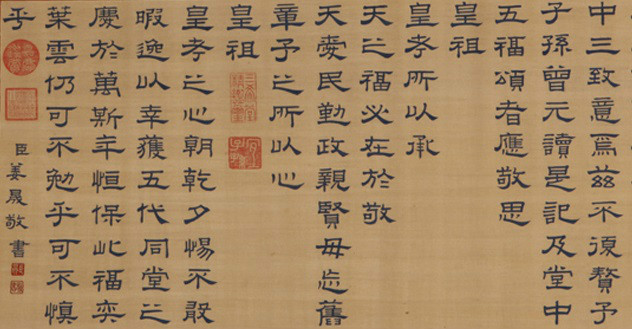 中三致意焉茲不復贅予
子孫曾元讀是記及堂中
五福頌者應敬思
皇祖
皇考所以承
天之福必在於敬
天愛民勤政親賢毋忘舊
章予之所以心
皇祖
皇考之心朝乾夕惕不敢
暇逸以幸獲五代同堂之
慶於萬斯年恒保此福奕
葉雲仍可不勉乎可不慎
乎
臣姜晟敬書